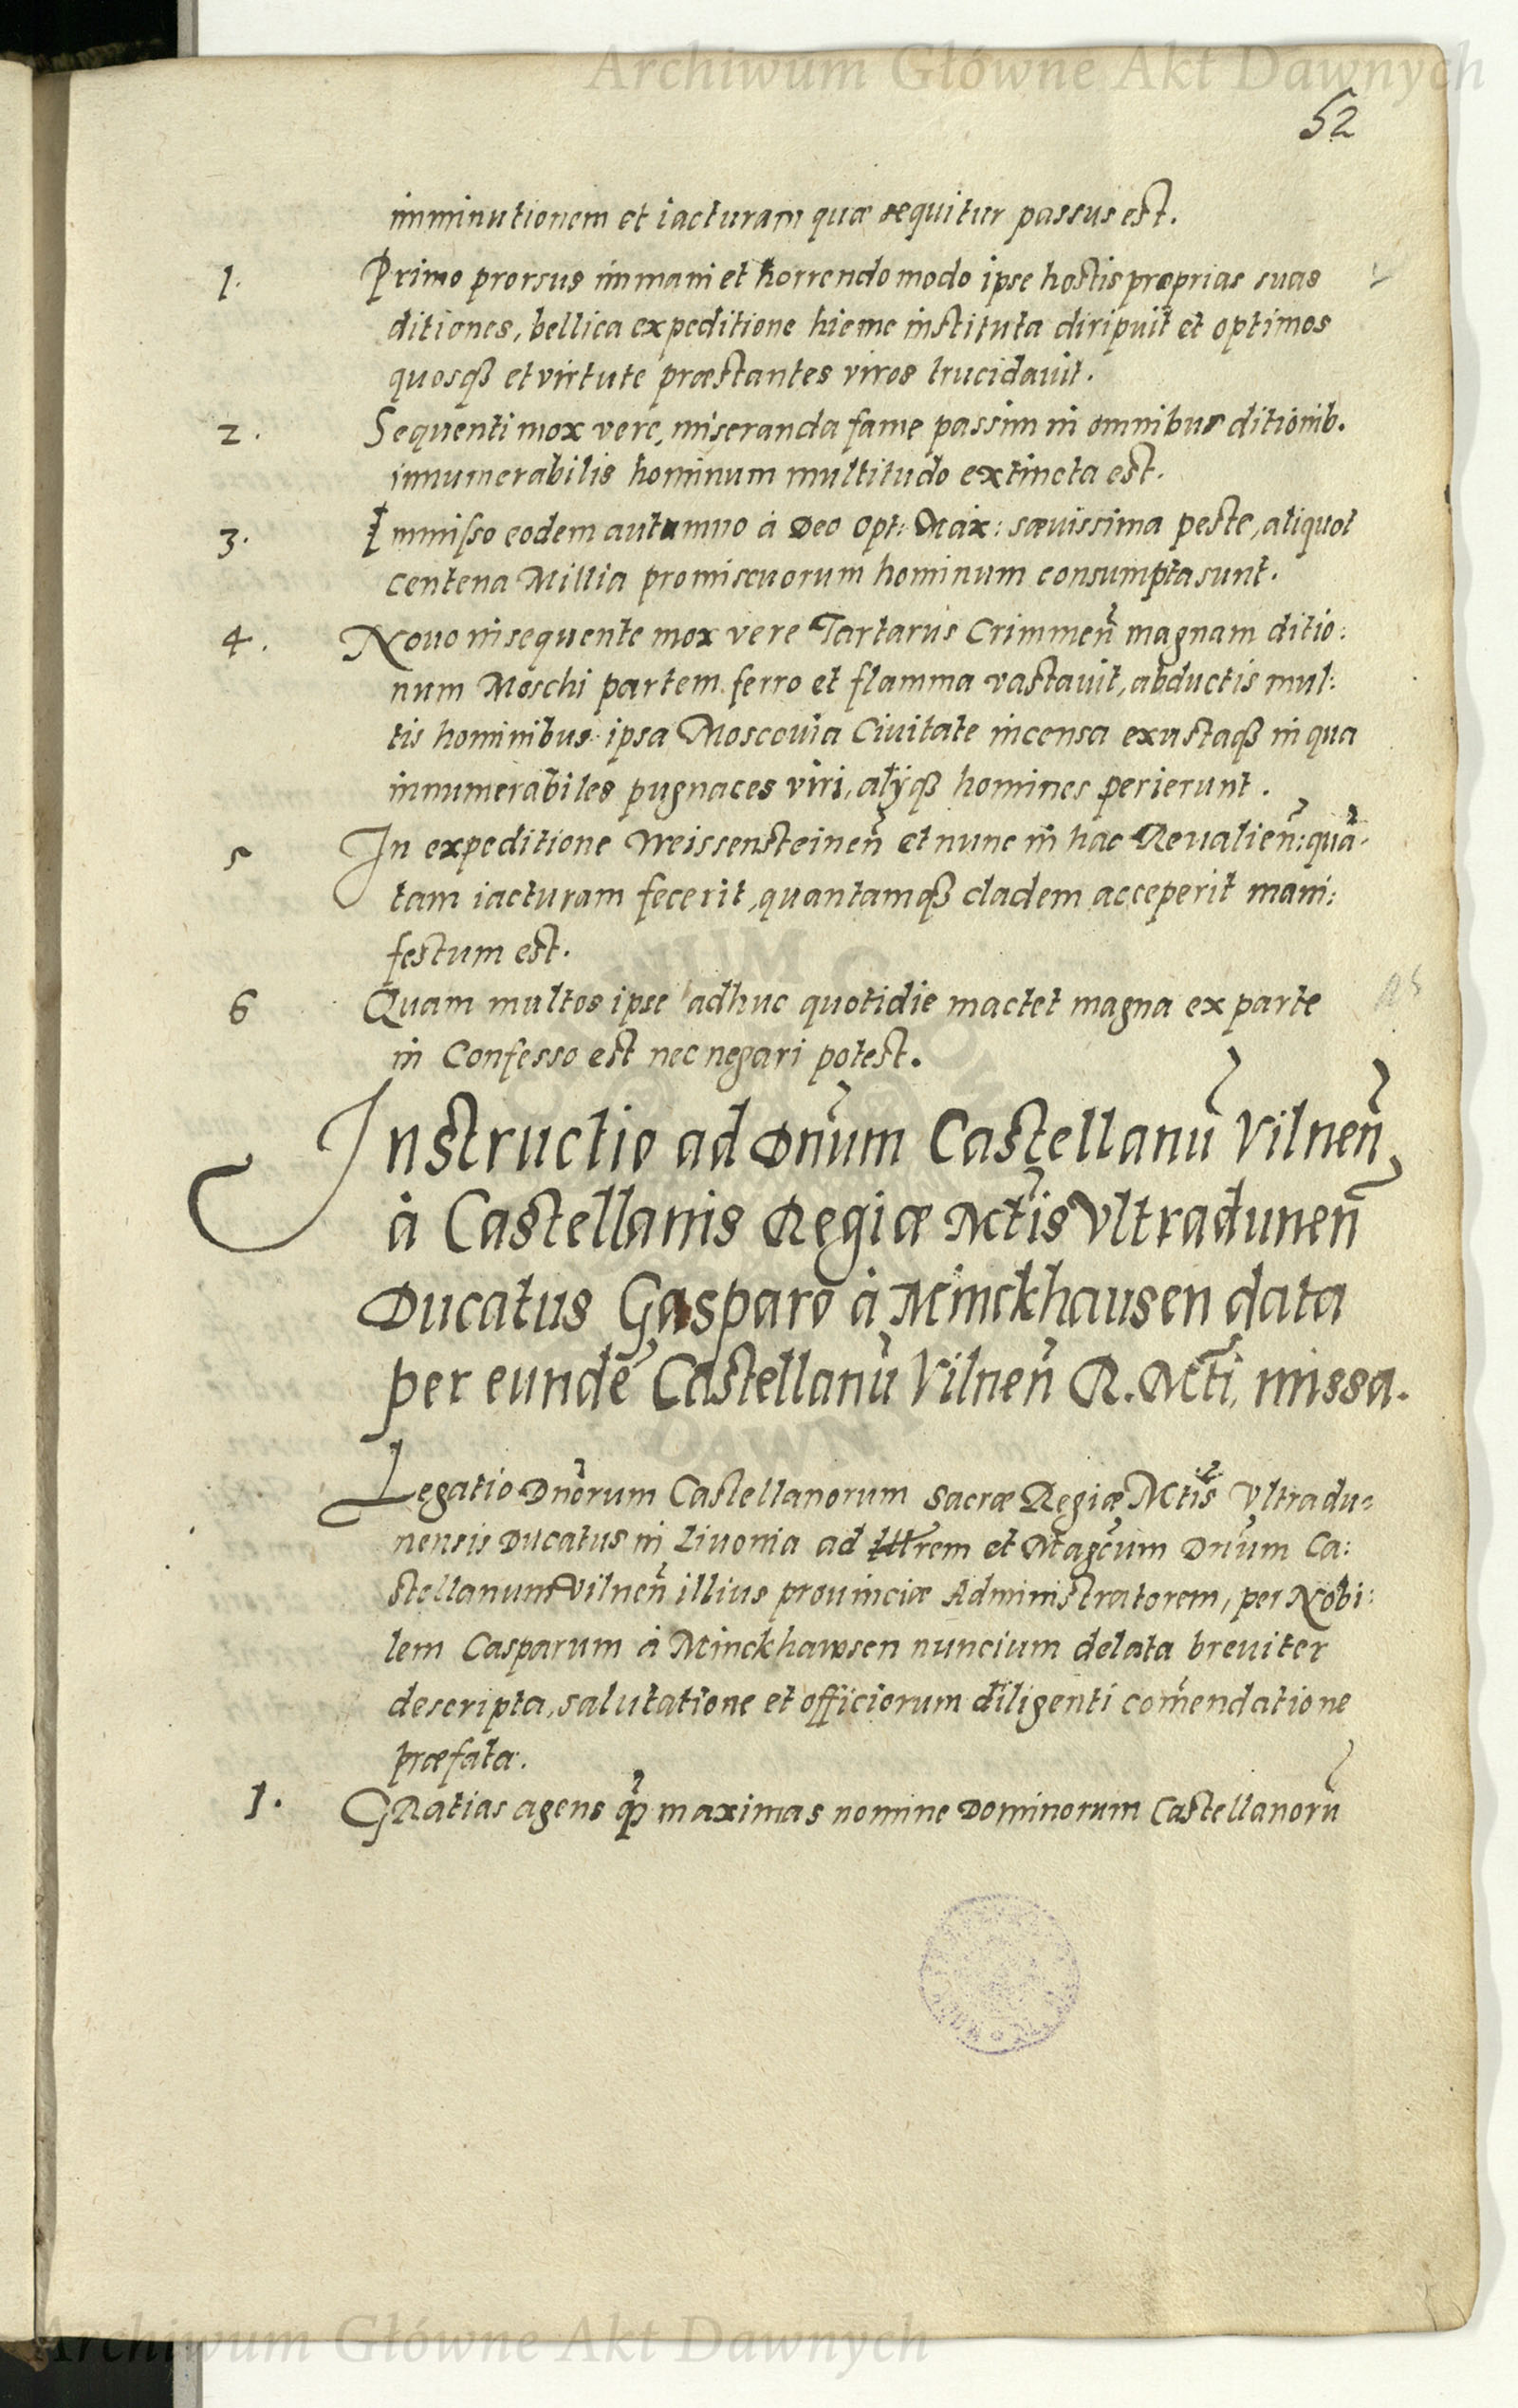 Archiwum Główne Akt Dawnych
52
imminutionem et iacturam quæ sequitur passus est.
1. Primo prorsus immani et horrendo modo ipse hostis proprias suas
ditiones, bellica expeditione hieme instituta diripuit et optimos
quosqß et virtute præstantes viros trucidauit.
2. Sequenti mox vere, miseranda fame passim in omnibus ditionib.
innumerabilis hominum multitudo extincta est.
3. Immisso eodem autumno à Deo Opt: Max: sæuissima peste, aliquot
centena Millia promiscuorum hominum consumpta sunt.
4. Nouo insequente mox vere Tartarus Crimmen̄ magnam ditio:
num Moschi partem ferro et flamma vastauit, abductis mul:
tis hominibus ipsa Moscouia Ciuitate incensa exustaqß in qua
innumerabiles pugnaces viri, alÿqß homines perierunt.
5 In expeditione Weissensteinen̄ et nunc in hac Reualien̄: quā-
tam iacturam fecerit, quantamqß cladem acceperit mani:
festum est.
6 Quam multos ipse adhuc quotidie mactet magna ex parte
in Confesso est nec negari potest.
Instructio ad Dn̄um Castellanū Vilnen̄
à Castellanis Regiæ Mtis Vltradunen̄
Ducatus Gasparo à Minckhausen data
per eundē Castellanū Vilnen̄ R. Mti, missa.
Legatio Dn̄orum Castellanorum Sacræ Regiæ Mtis Vltradu:
nensis Ducatus in Liuonia ad Illrem et Magcum Dn̄um Ca:
stellanum Vilnen̄ illius prouinciæ Administratorem, per Nobi:
lem Casparum à Minckhawsen nuncium delata breuiter
descripta, salutatione et officiorum diligenti com̄endatione
præfata.
1. GRatias agens maximas nomine Dominorum Castellanorū
Archiwum Główne Akt Dawnych